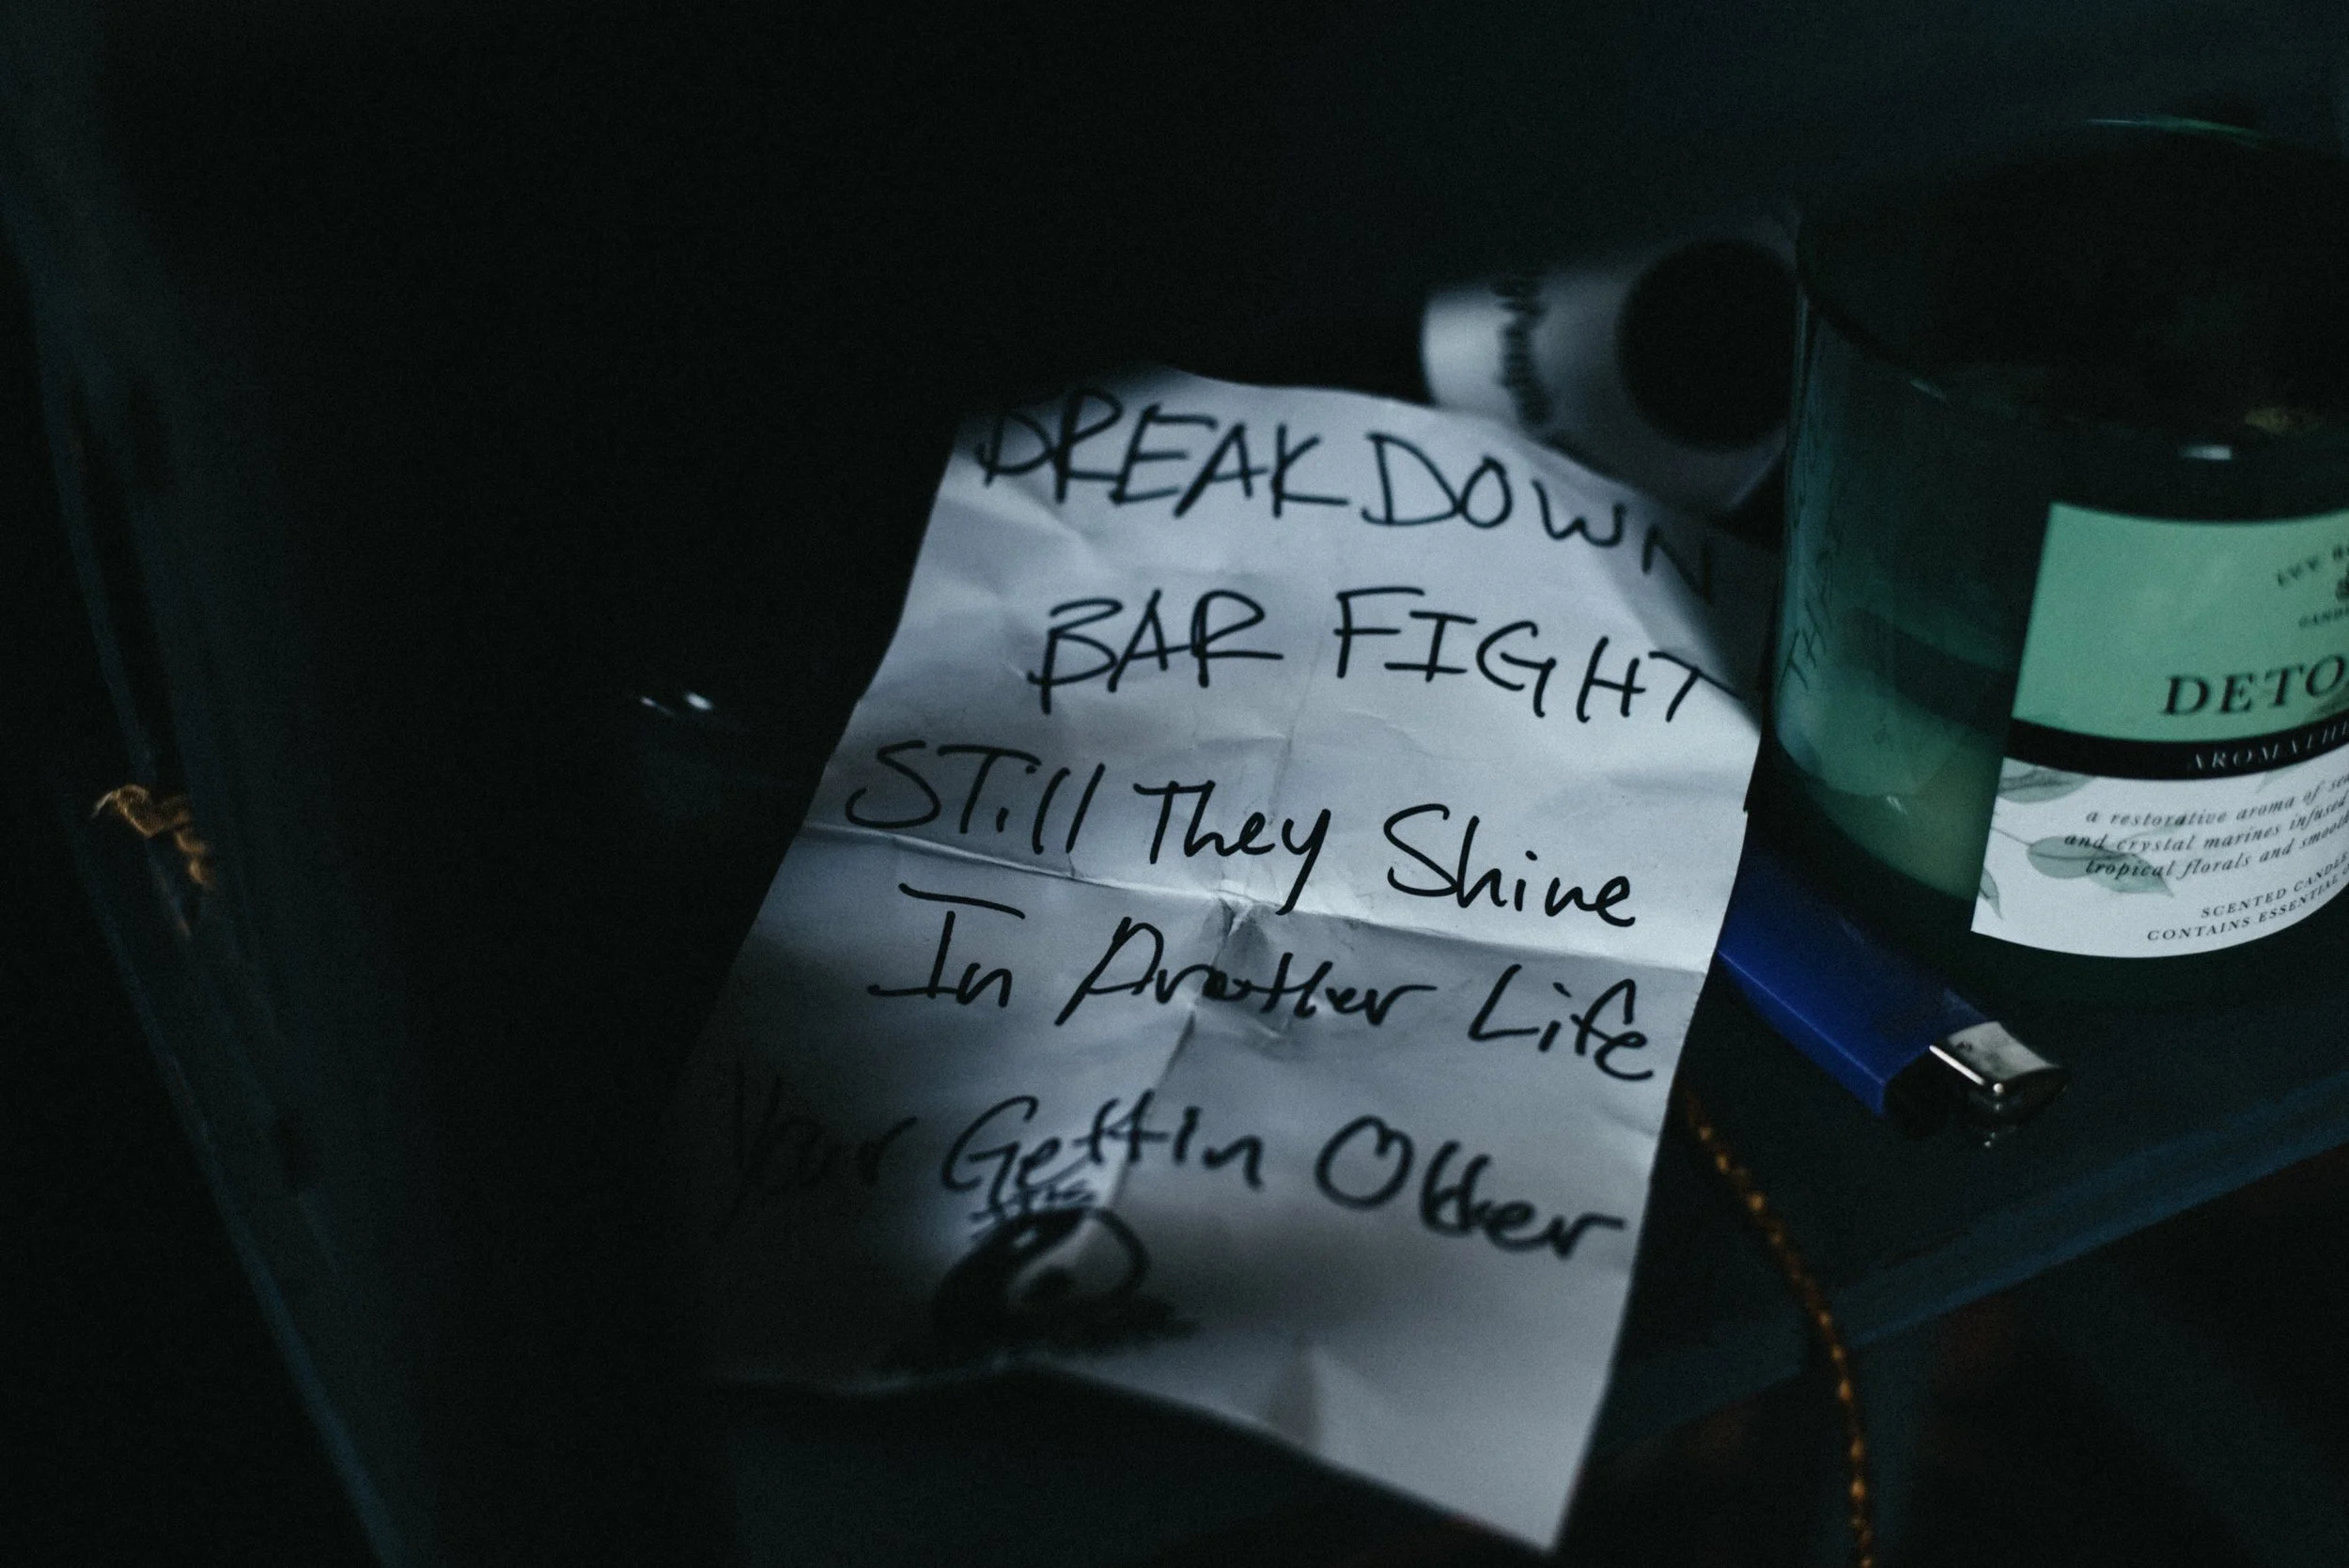 BREAKDOWN
BAR FIGHT
STill They Shine
In Another Life
Your Gettin Older
DETO
AROMATHE
a restorative aroma of se
and crystal marines infused
tropical florals and smooth
SCENTED CANDLE
CONTAINS ESSENTIAL